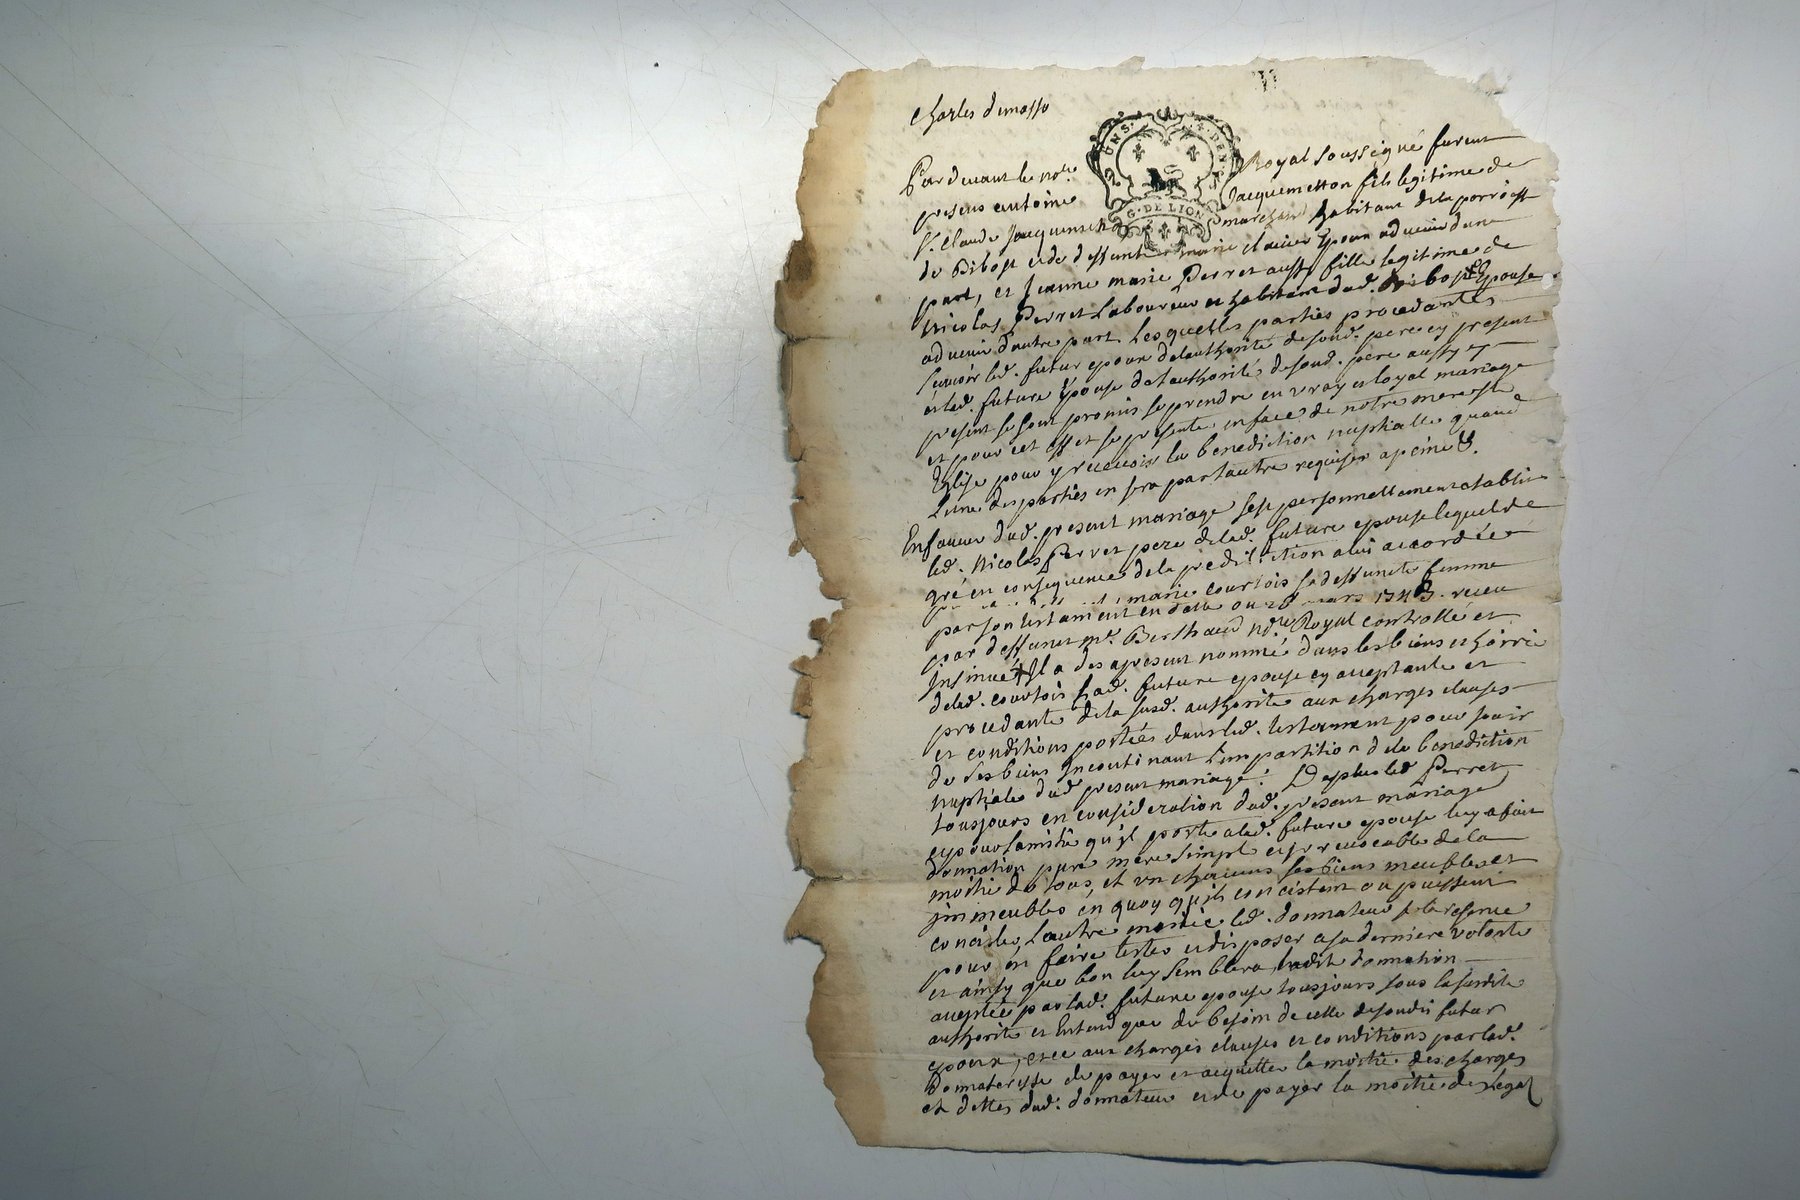 Charles demasso
2 UNS. 4. DEN.
G. DE LION
Pardevant le nore Royal soussigné furent
presens antoine Jacquemetton fils legitime de
Sr. Claude Jacquemetton marchand habitant dela parroisse
de Bibost et de deffunte marie Epoux advenir dune
part, et Jeanne marie Perret aussy fille legitime de
Nicolas Perret Laboureur et habitant dud. Bibost Epouse
advenir dautre part Lesquelles parties procedantes
scavoir led. futur epoux delauthorité desond. pere cy present
et lad. future Epouse de lauthorité desond. pere aussy cy
present se sont promis se prendre en vray et loyal mariage
et pour cet effet se presenter en face de notre mere ste
Eglise pour y recevoir la benediction nuptialle quand
Lune des parties en sera par lautre requise a peine &.
En faveur dud. present mariage sest personnellement etablit
led. Nicolas Perret pere delad. future epouse lequel de
gré en consequence de la predilection a lui accordée
marie Courtois sa deffuncte femme
par son testament en datte du mars 1743. receu
par deffunct me. Berthaud nore. Royal controllé et
insinué Il a des apresent nommé dans les biens et hoirie
delad. Courtois lad. future epouse cy acceptante et
procedante dela susd. authorité aux charges clauses
et conditions portées dans led. testament pour jouir
de ses biens Incontinant Limpartition dela benediction
nuptiale dud. present mariage. De plus led Perret
tousjours en consideration dud. present mariage
et pour lamitié quil porte alad. future epouse luy a fait
donnation pure mere simple et irrevocable de la
moitié de tous et un chacuns ses biens meubles et
immeubles en quoy quils concistent ou puissent
concister, Lautre moitié led. donnateur se la reserve
pour en faire tester et disposer a sa derniere volonte
et ainsy que bon luy semblera, ladite donnation
acceptée par lad. future epouse tousjours sous la susdite
authorite et Entend que de besoin de celle desondit futur
epoux, et ce aux charges clauses et conditions par lad.
Donnateresse de payer et acquitter la moitie des charges
et dettes dud. donnateur et de payer la moitié de Legal